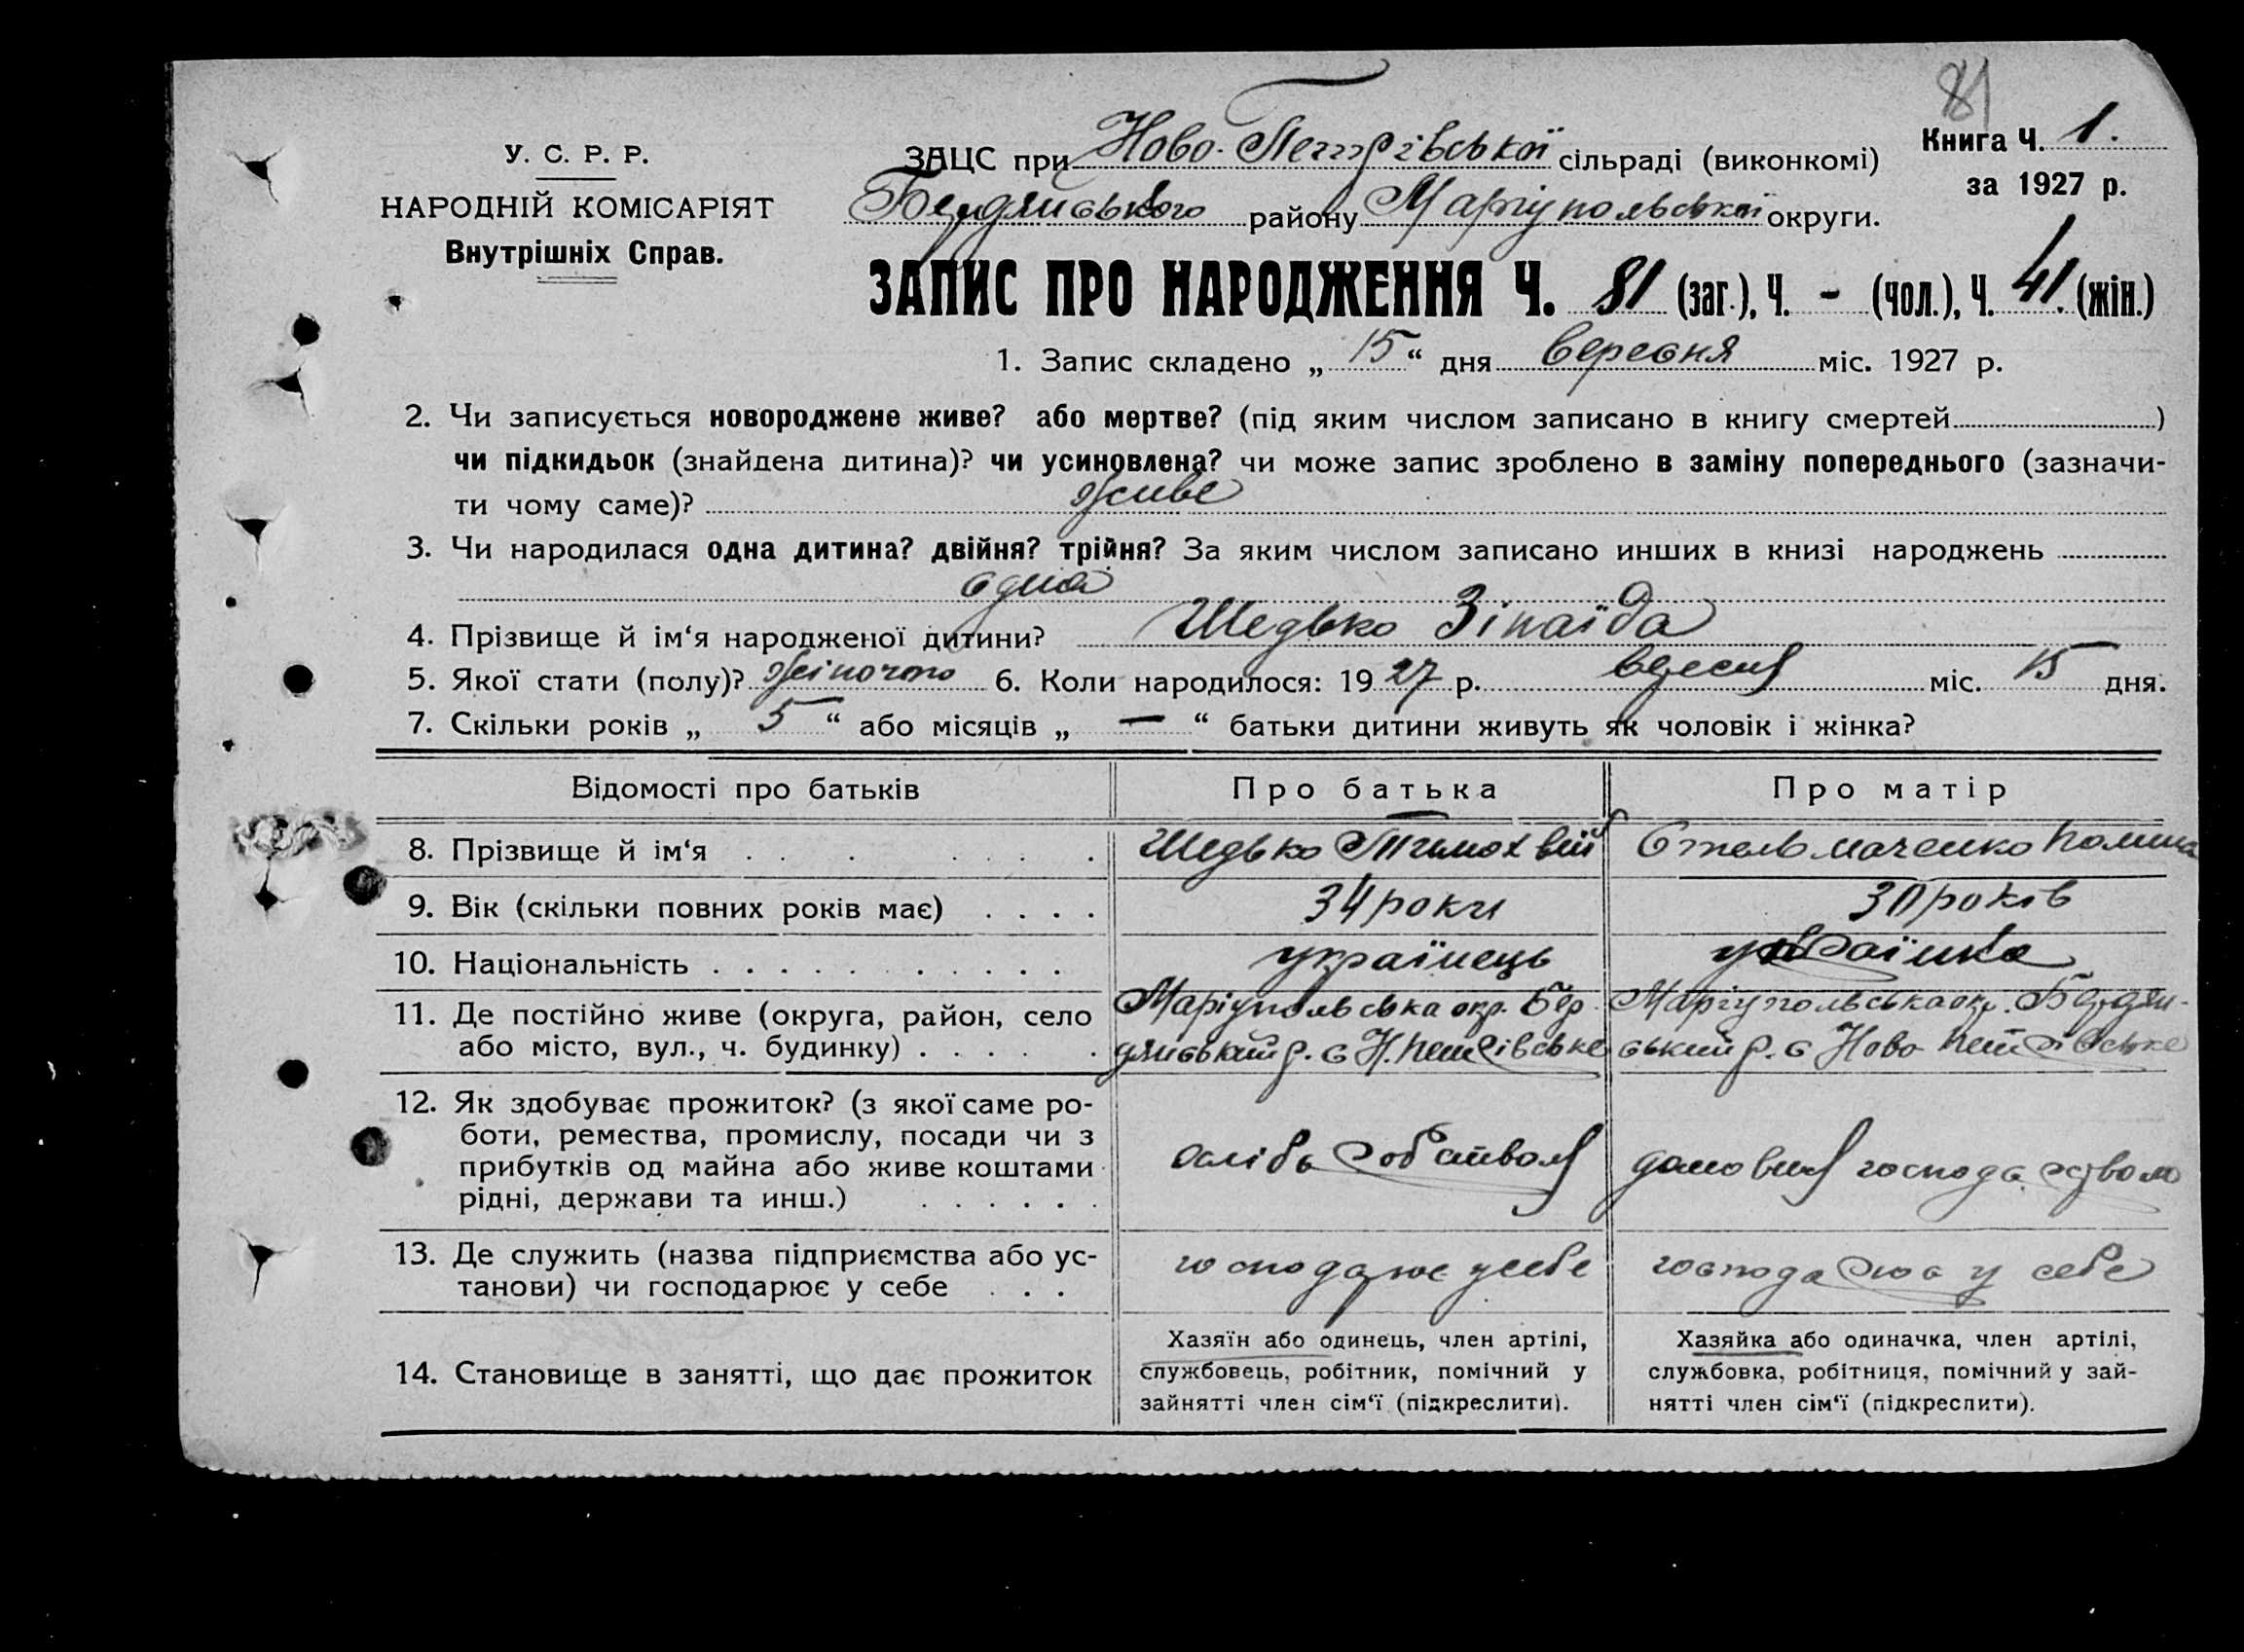 81
У. С. Р. Р.
НАРОДНІЙ КОМІСАРІЯТ
Внутрішніх Справ.
ЗАЦС при Ново-Петрівської сільраді (виконкомі)
Книга Ч. 1.
за 1927 р.
Бердянського району Маріупольської округи.
ЗАПИС ПРО НАРОДЖЕННЯ Ч. 81 (заг.), Ч. - (чол.), Ч. 41. (жін.)
1. Запис складено „ 15 “ дня вересня міс. 1927 р.
2. Чи записується новороджене живе? або мертве? (під яким числом записано в книгу смертей )
чи підкидьок (знайдена дитина)? чи усиновлена? чи може запис зроблено в заміну попереднього (зазначи-
ти чому саме)? живе
3. Чи народилася одна дитина? двійня? трійня? За яким числом записано инших в книзі народжень
одна
4. Прізвище й ім‘я народженої дитини? Шедько Зінаїда
5. Якої стати (полу)? жіночого 6. Коли народилося: 1927 р. вересня міс. 15 дня.
7. Скільки років „ 5 “ або місяців „ — “ батьки дитини живуть як чоловік і жінка?
Відомості про батьків Про батька Про матір
8. Прізвище й ім‘я Шедько Тимохвій Стельмаченко
9. Вік (скільки повних років має) 34 роки 30 років
10. Національність українець українка
11. Де постійно живе (округа, район, село
або місто, вул., ч. будинку)
Маріупольська окр. Бер
дянський р. с Н. Петрівське
Маріупольська окр. Бердян-
ський р. с Ново Петрівське
12. Як здобуває прожиток? (з якої саме ро-
боти, ремества, промислу, посади чи з
прибутків од майна або живе коштами
рідні, держави та инш.)
хлібо робством
домовим господарством
13. Де служить (назва підприємства або ус-
танови) чи господарює у себе
господарює у себе
господарює у себе
14. Становище в занятті, що дає прожиток
Хазяїн або одинець, член артілі,
службовець, робітник, помічний у
зайнятті член сім‘ї (підкреслити).
Хазяйка або одиначка, член артілі,
службовка, робітниця, помічний у зай-
нятті член сім‘ї (підкреслити).